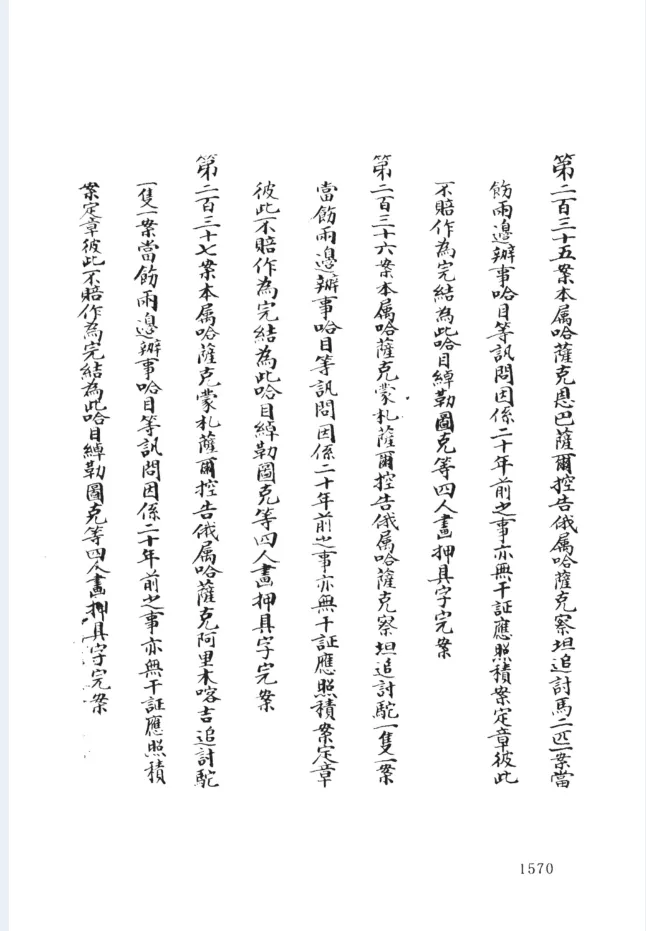 第二百三十五案本属哈薩克恩巴薩爾控告俄属哈薩克察坦追討馬二匹一案當
飭兩邊辦事哈目等訊問因係二十年前之事亦無干証應照積案定章彼此
不賠作為完結為此哈目綽勒圖克等四人畫押具字完案
第二百三十六案本属哈薩克蒙札薩爾控告俄属哈薩克察坦追討駝一隻一案
當飭兩邊辦事哈目等訊問因係二十年前之事亦無干証應照積案定章
彼此不賠作為完結為此哈目綽勒圖克等四人畫押具字完案
第二百三十七案本属哈薩克蒙札薩爾控告俄属哈薩克阿里木喀吉追討駝
一隻一案當飭兩邊辦事哈目等訊問因係二十年前之事亦無干証應照積
案定章彼此不賠作為完結為此哈目綽勒圖克等四人畫押具字完案
1570